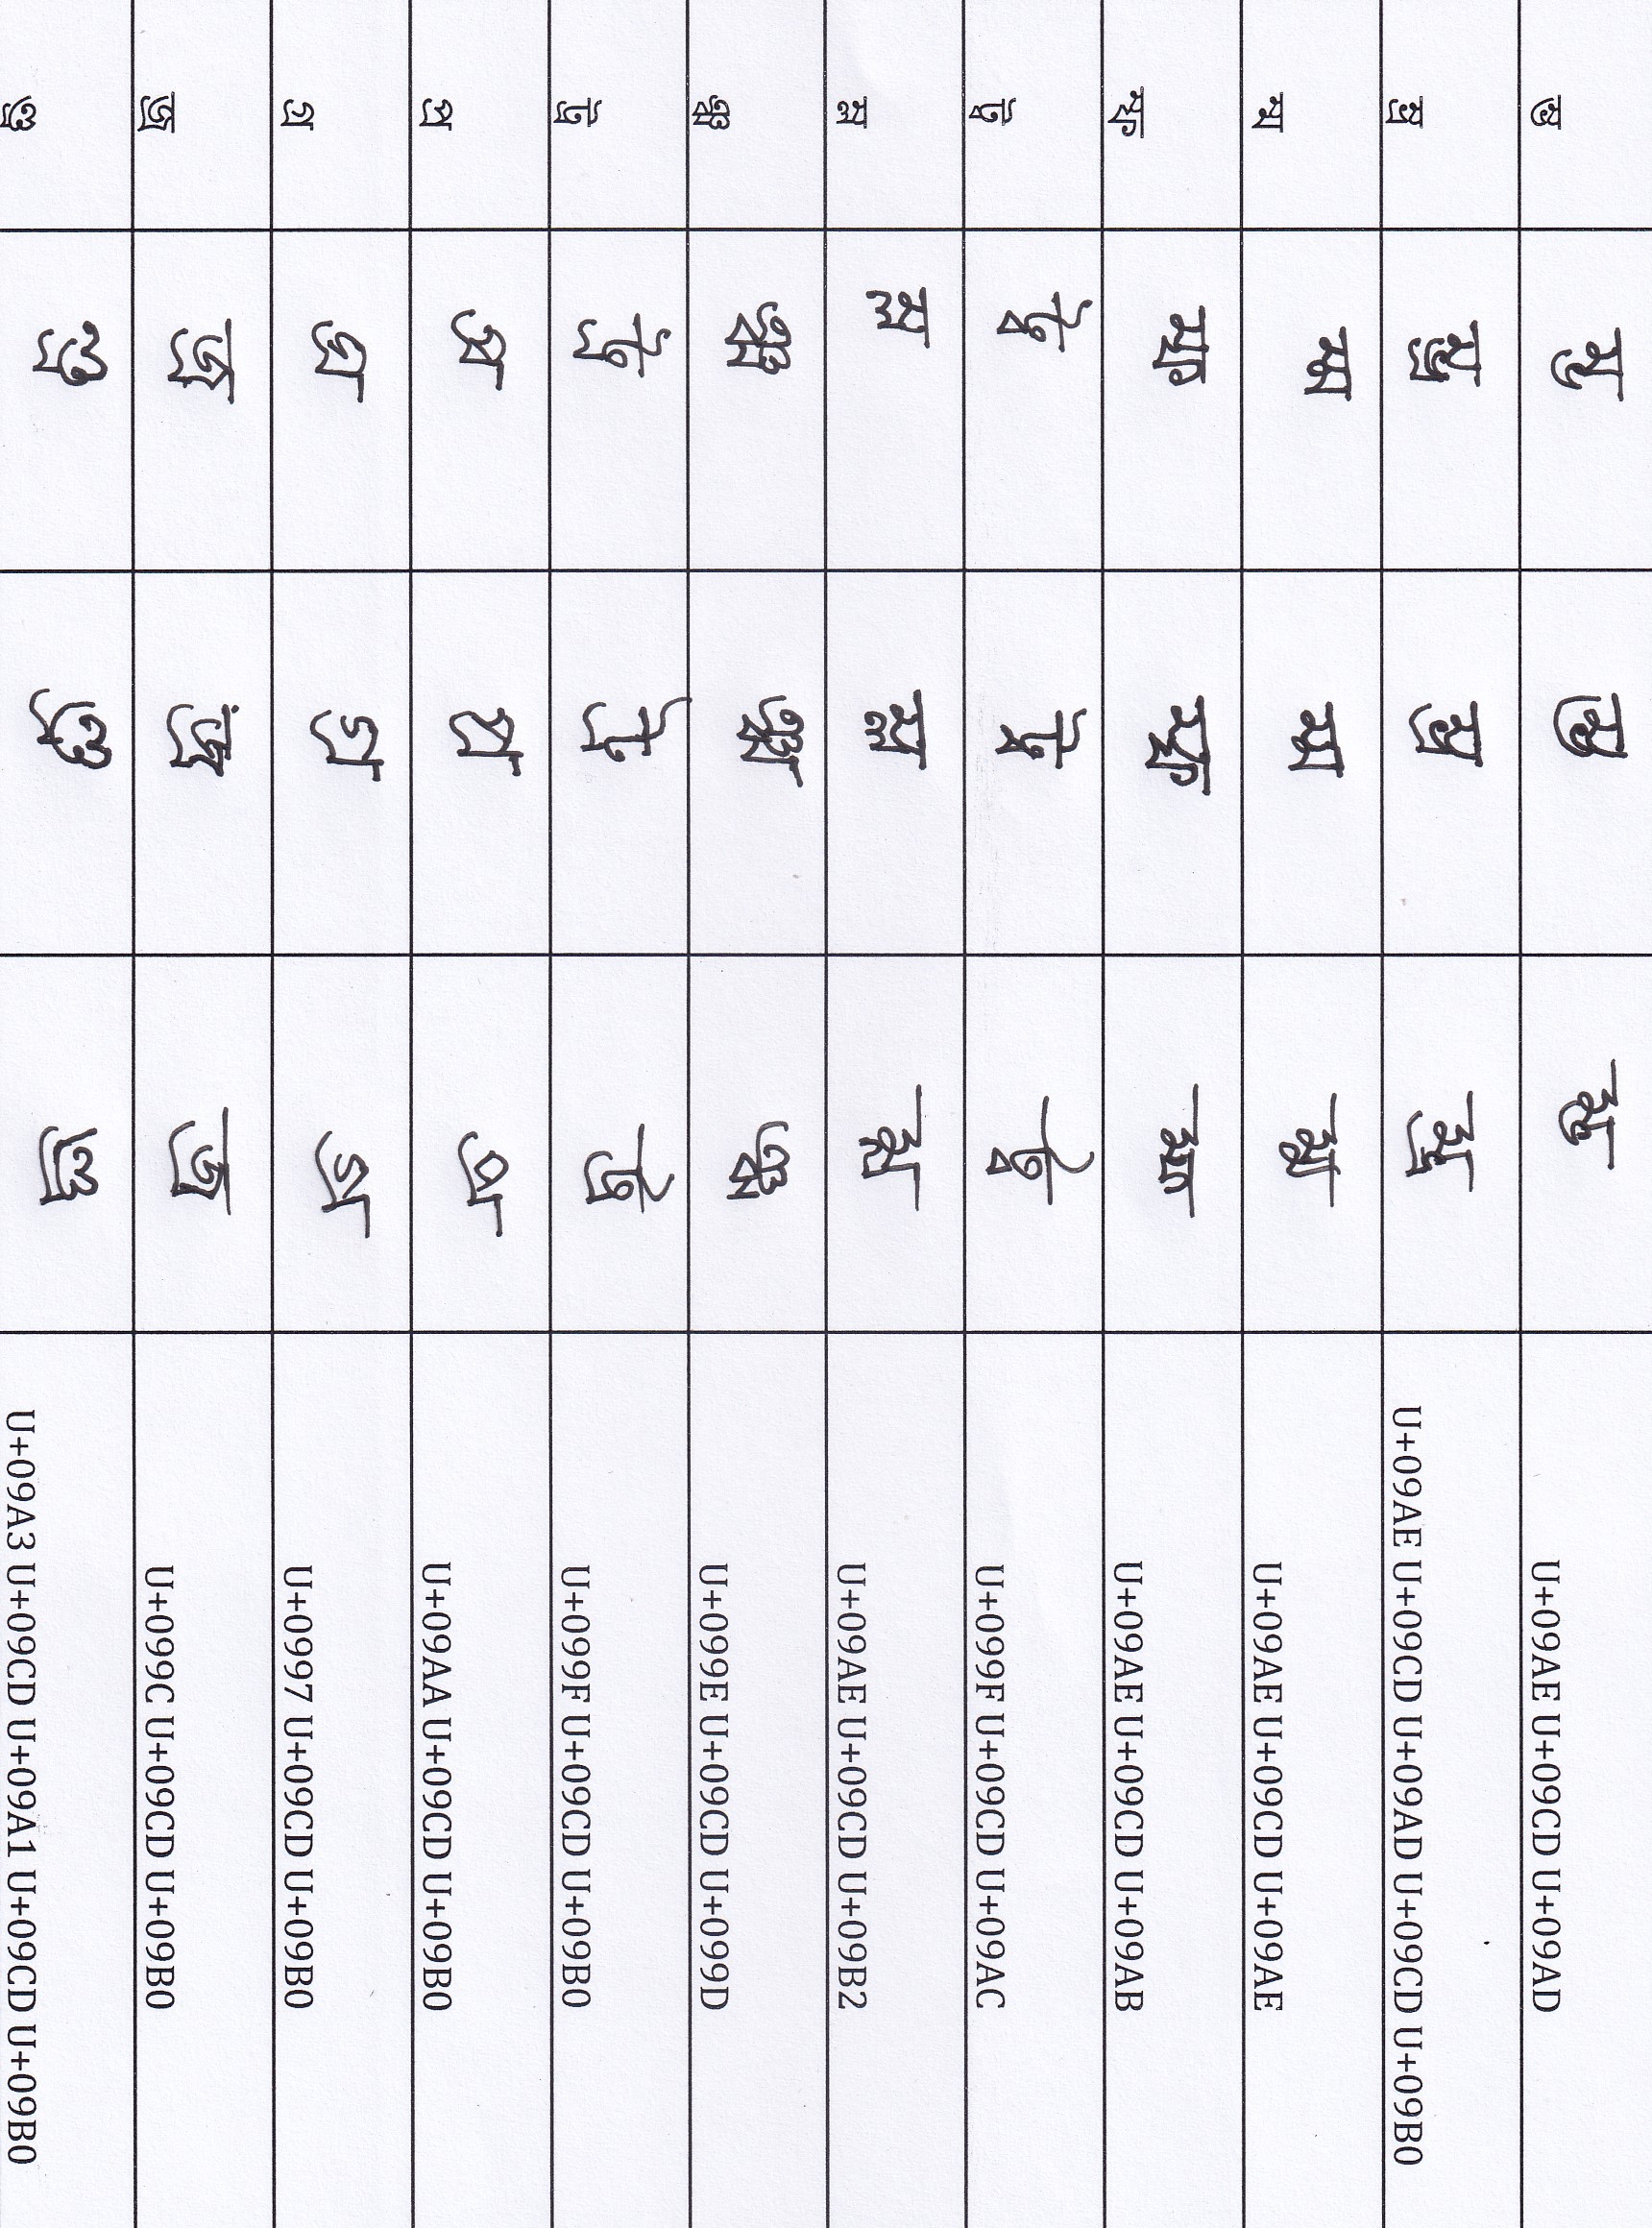 ম্ভ ম্ভ ম্ভ ম্ভ U+09AE U+09CD U+09AD
ম্ভ্র ম্ভ্র ম্ভ্র ম্ভ্র U+09AE U+09CD U+09AD U+09CD U+09B0
ম্ম ম্ম ম্ম ম্ম U+09AE U+09CD U+09AE
ম্ফ ম্ফ ম্ফ ম্ফ U+09AE U+09CD U+09AB
ট্ব ট্ব ট্ব ট্ব U+099F U+09CD U+09AC
ম্ল ম্ল ম্ল ম্ল U+09AE U+09CD U+09B2
ঞ্ঝ ঞ্ঝ ঞ্ঝ ঞ্ঝ U+099E U+09CD U+099D
ট্র ট্র ট্র ট্র U+099F U+09CD U+09B0
প্র প্র প্র প্র U+09AA U+09CD U+09B0
গ্র গ্র গ্র গ্র U+0997 U+09CD U+09B0
জ্র জ্র জ্র জ্র U+099C U+09CD U+09B0
ণ্ড্র ণ্ড্র ণ্ড্র ণ্ড্র U+09A3 U+09CD U+09A1 U+09CD U+09B0